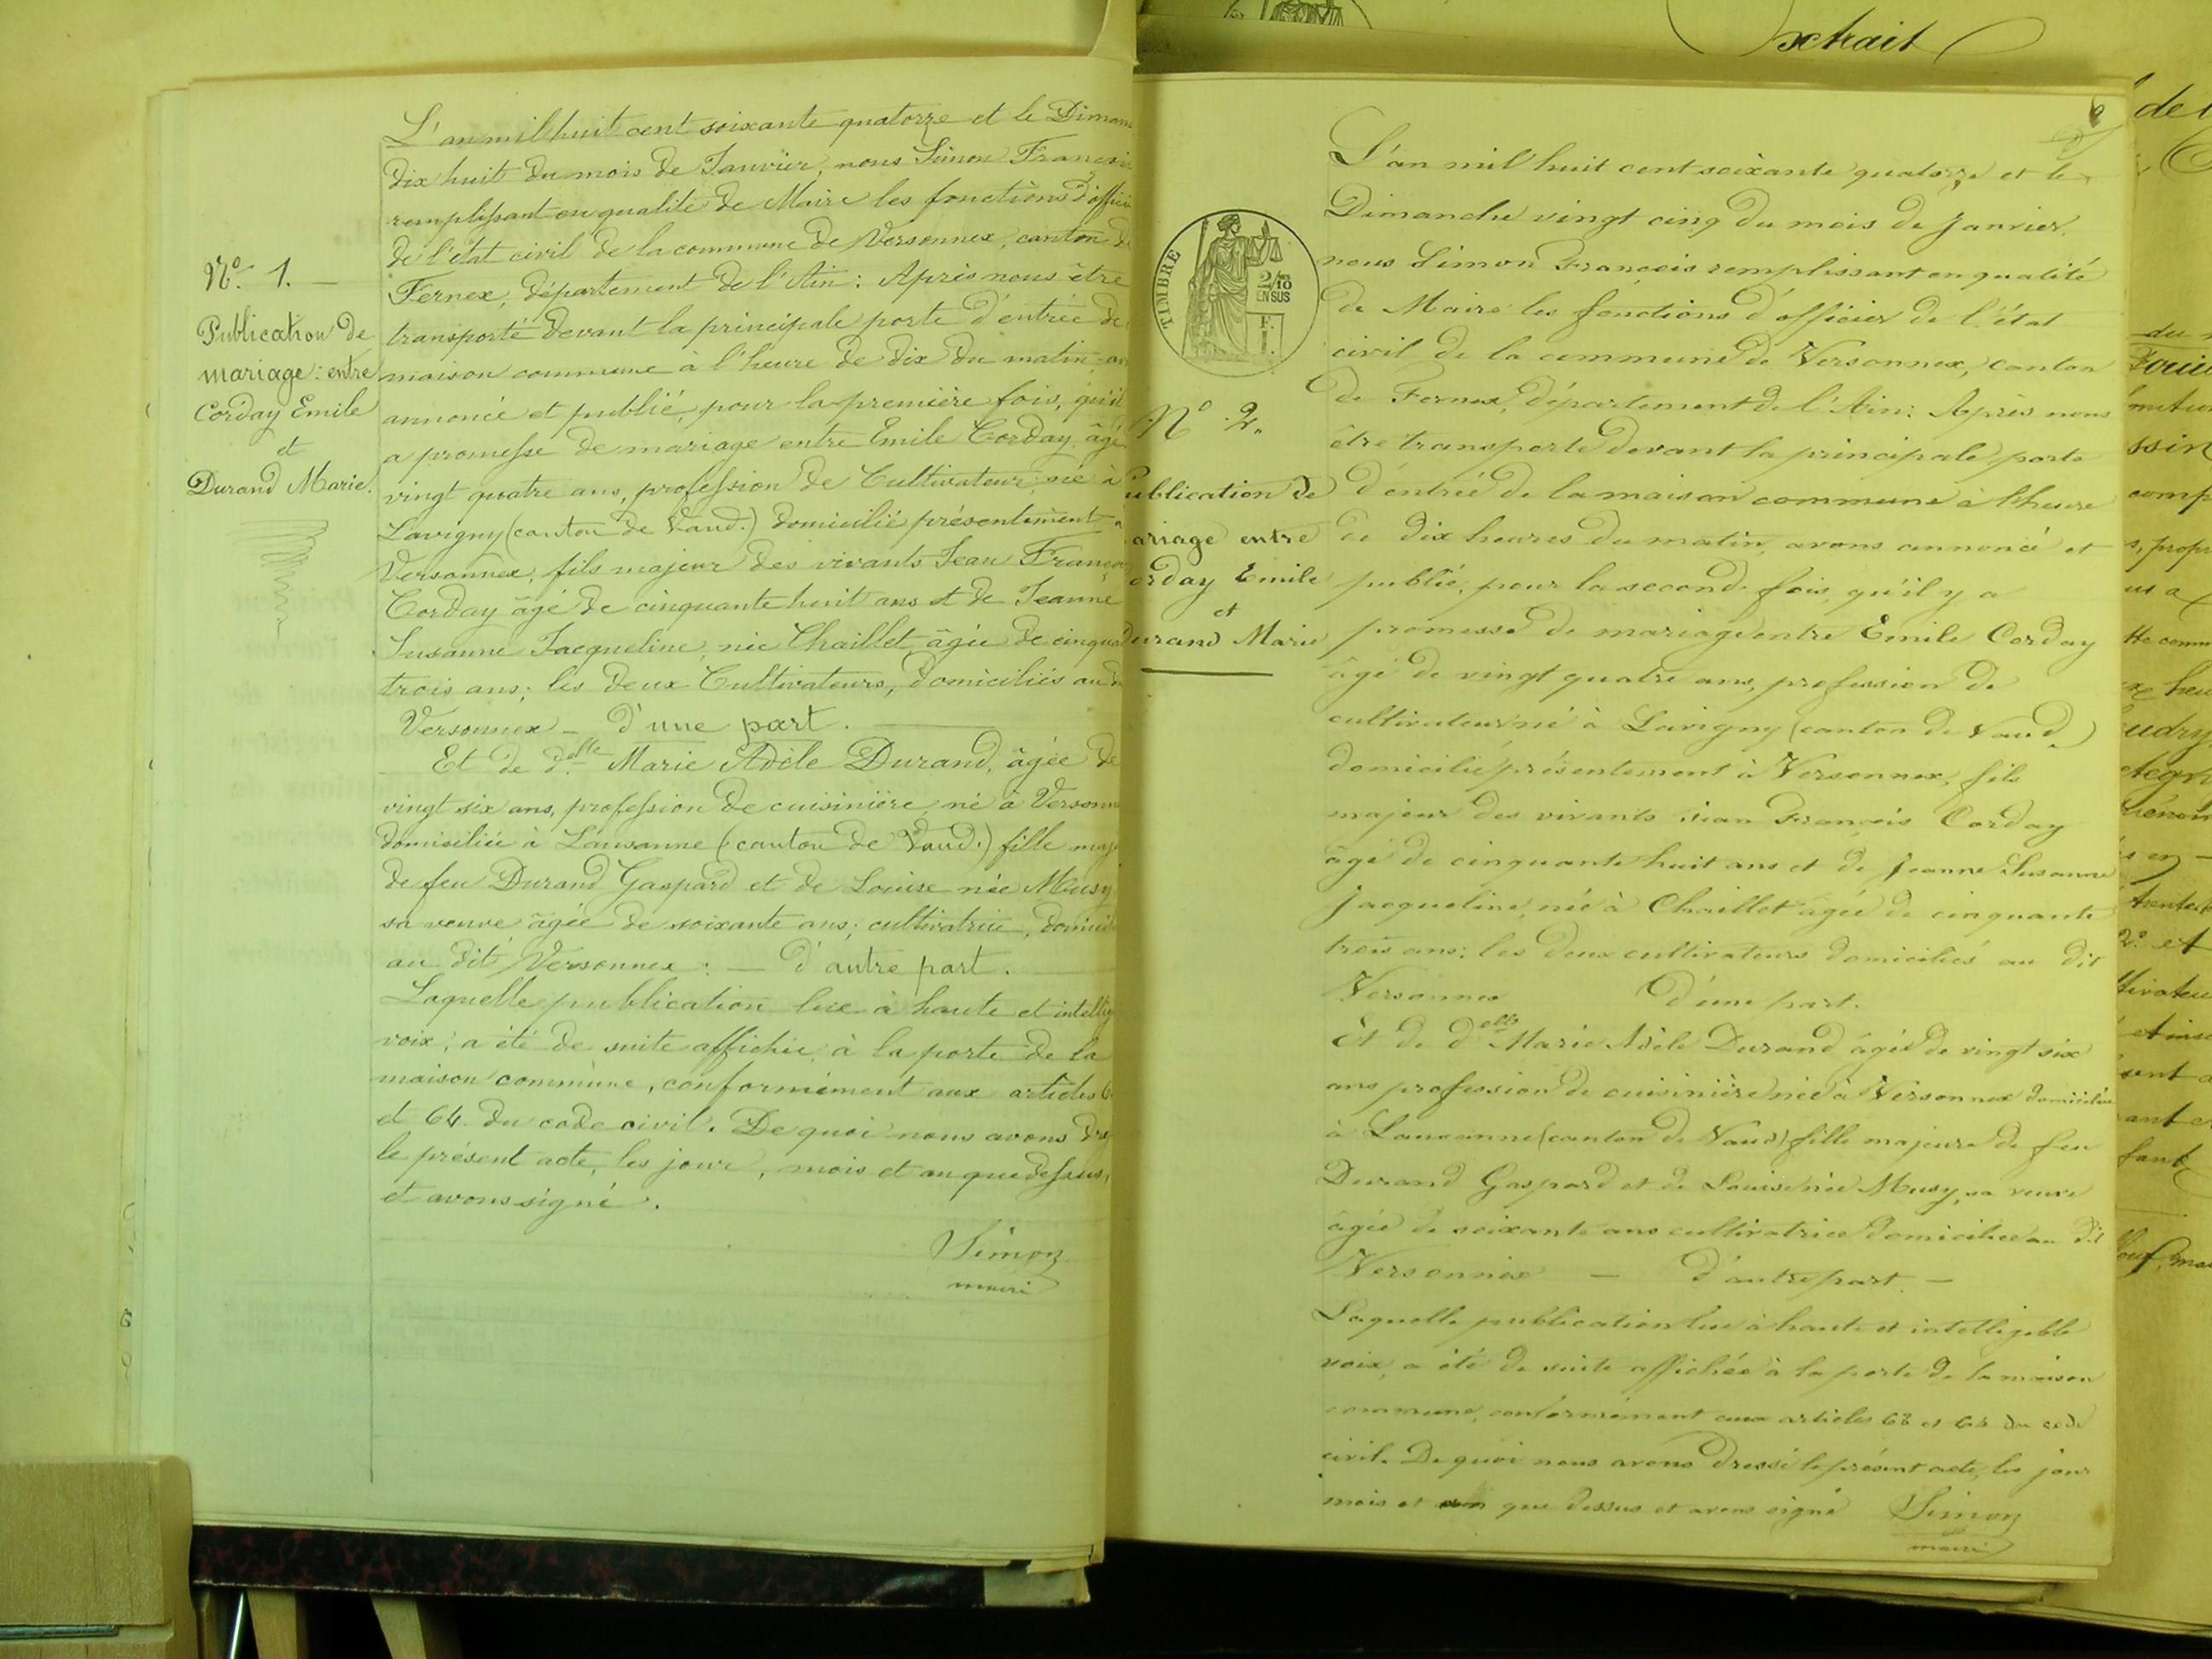 L'an mil huit cent soixante quatorze et le Diman
dix huit du mois de Janvier, nous Simon François
remplissant en qualité de Maire les fonctions d'offici
de l'état civil de la commune de Versonnex, canton de
Fernex, département de l'Ain : Après nous être
transporté devant la principale porte d'entrée de
maison commune à l'heure de dix du matin
annoncé et publié, pour la première fois, qu'il
a promesse de mariage entre Emile Corday, âgé
vingt quatre ans, profession de Cultivateur, né à
Lavigny (canton de Vaud.) domicilié présentement à
Versonnex, fils majeur des vivants Jean François
Corday âgé de cinquante huit ans et de Jeanne
Susanne Jacqueline, née Chaillet, âgée de cinqua
trois ans; les deux Cultivateurs, domiciliés au
Versonnex — d'une part.
Et de d.elle Marie Adèle Durand, âgée de
vingt six ans, profession de cuisinière né à Versonn
domiciliée à Lausanne (canton de Vaud.) fille maj
de feu Durand Gaspard et de Louise née Musy
sa veuve âgée de soixante ans; cultivatrice, domici
au dit Versonnex : — d'autre part.
Laquelle publication lue à haute et intellig
voix, a été de suite affichée, à la porte de la
maison commune, conformément aux articles 6
et 64 du code civil. De quoi nous avons dre
le présent acte, les jour, mois et an que dessus,
et avons signé.
Simon
maire
No. 1. —
Publication de
mariage : entre
Corday Emile
et
Durand Marie.
Extrait
6
L'an mil huit cent soixante quatorze et le
Dimanche vingt cinq du mois de Janvier,
nous Simon François remplissant en qualité
de Maire les fonctions d'officier de l'état
civil de la commune de Versonnex, canton
de Fernex, département de l'Ain : Après nous
être transporté devant la principale porte
d'entrée de la maison commune à l'heure
de dix heures du matin, avons annoncé et
publié, pour la seconde fois, qu'il y a
promesse de mariage entre Emile Corday
âgé de vingt quatre ans, profession de
cultivateur né à Lavigny (canton de Vaud.)
domicilié présentement à Versonnex, fils
majeur des vivants Jean François Corday
âgé de cinquante huit ans et de Jeanne Susanne
Jacqueline, née à Chaillet âgée de cinquante
trois ans; les deux cultivateurs domiciliés au dit
Versonnex d'une part.
Et de d.elle Marie Adèle Durand âgée de vingt six
ans profession de cuisinière née à Versonnex domiciliée
à Lausanne (canton de Vaud) fille majeure de feu
Durand Gaspard et de Louise née Musy, sa veuve
âgée de soixante ans cultivatrice domiciliée au dit
Versonnex — d'autre part —
Laquelle publication lue à haute et intelligible
voix, a été de suite affichée à la porte de la maison
commune, conformément aux articles 63 et 64 du code
civil. De quoi nous avons dressé le présent acte, les jour
mois et an que dessus et avons signé Simon
maire
TIMBRE
2/10
EN SUS
No. 2.
ublication de
ariage entre
orday Emile
et
urand Marie